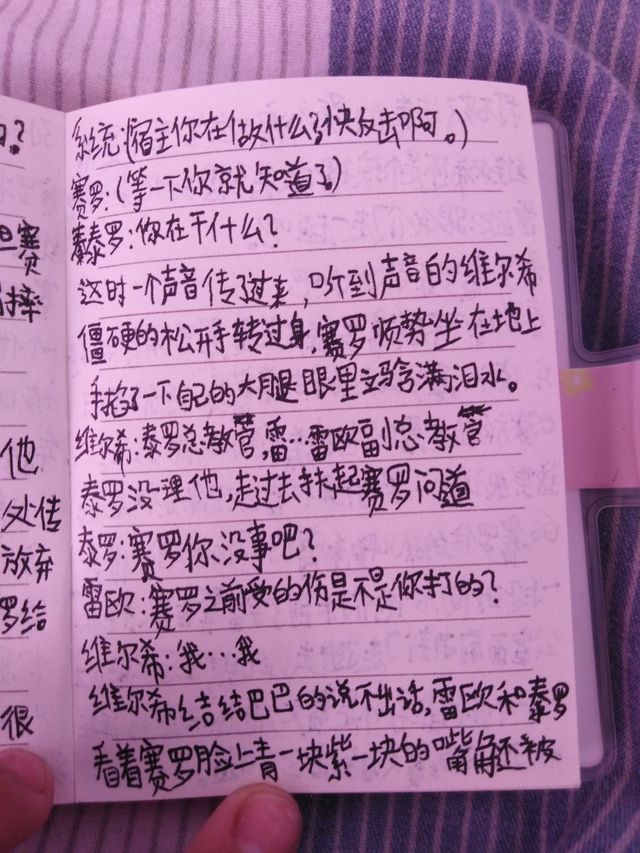 的？
但赛
摔
他
处传
放弃
罗给
很
系统：(宿主你在做什么了快反击啊。)
赛罗：(等一下你就知道了。)
泰罗：你在干什么？
这时一个声音传了过来，听到声音的维尔希
僵硬的松开手转过身，赛罗顺势坐在地上
手掐了一下自己的大腿眼里立马含满泪水。
维尔希：泰罗总教官，雷…雷欧副总教官
泰罗没理他，走过去扶起赛罗问道
泰罗：赛罗你没事吧？
雷欧：赛罗之前受的伤是不是你打的？
维尔希：我…我
维尔希结结巴巴的说不出话，雷欧和泰罗
看着赛罗脸上青一块紫一块的嘴角还被